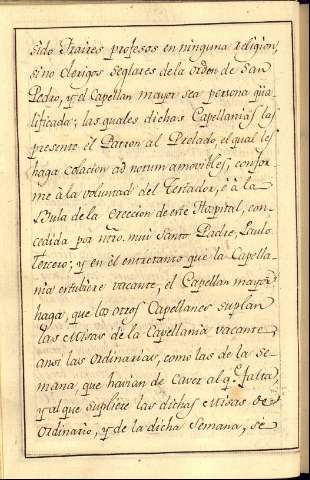 sido Fraires profesos en ninguna religion,
sino clerigos seglares de la orden de San
Pedro, y el Capellan mayor sea persona qüa
lificada; las quales dichas Capellanias las
presente el Patron al Prelado, el qual les
haga colacion ad notum amovibles, confor
me à la voluntad del Testador, è à la
Bula de la Ereccion de este Hospital, con
cedida por nrõ. mui Santo Padre, Paulo
Tercero; y en el entretanto que la Capella
nia estubiere vacante, el Capellan mayor
haga, que los otros Capellanes suplan
las Misas de la Capellania vacante,
ansi las ordinarias, como las de la se
mana, que havian de caver al q.e falta,
y al que supliere las dichas Misas de
ordinario, y de la dicha Semana, se